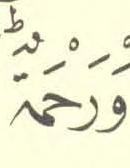 وَرَحْمَةٌؕ